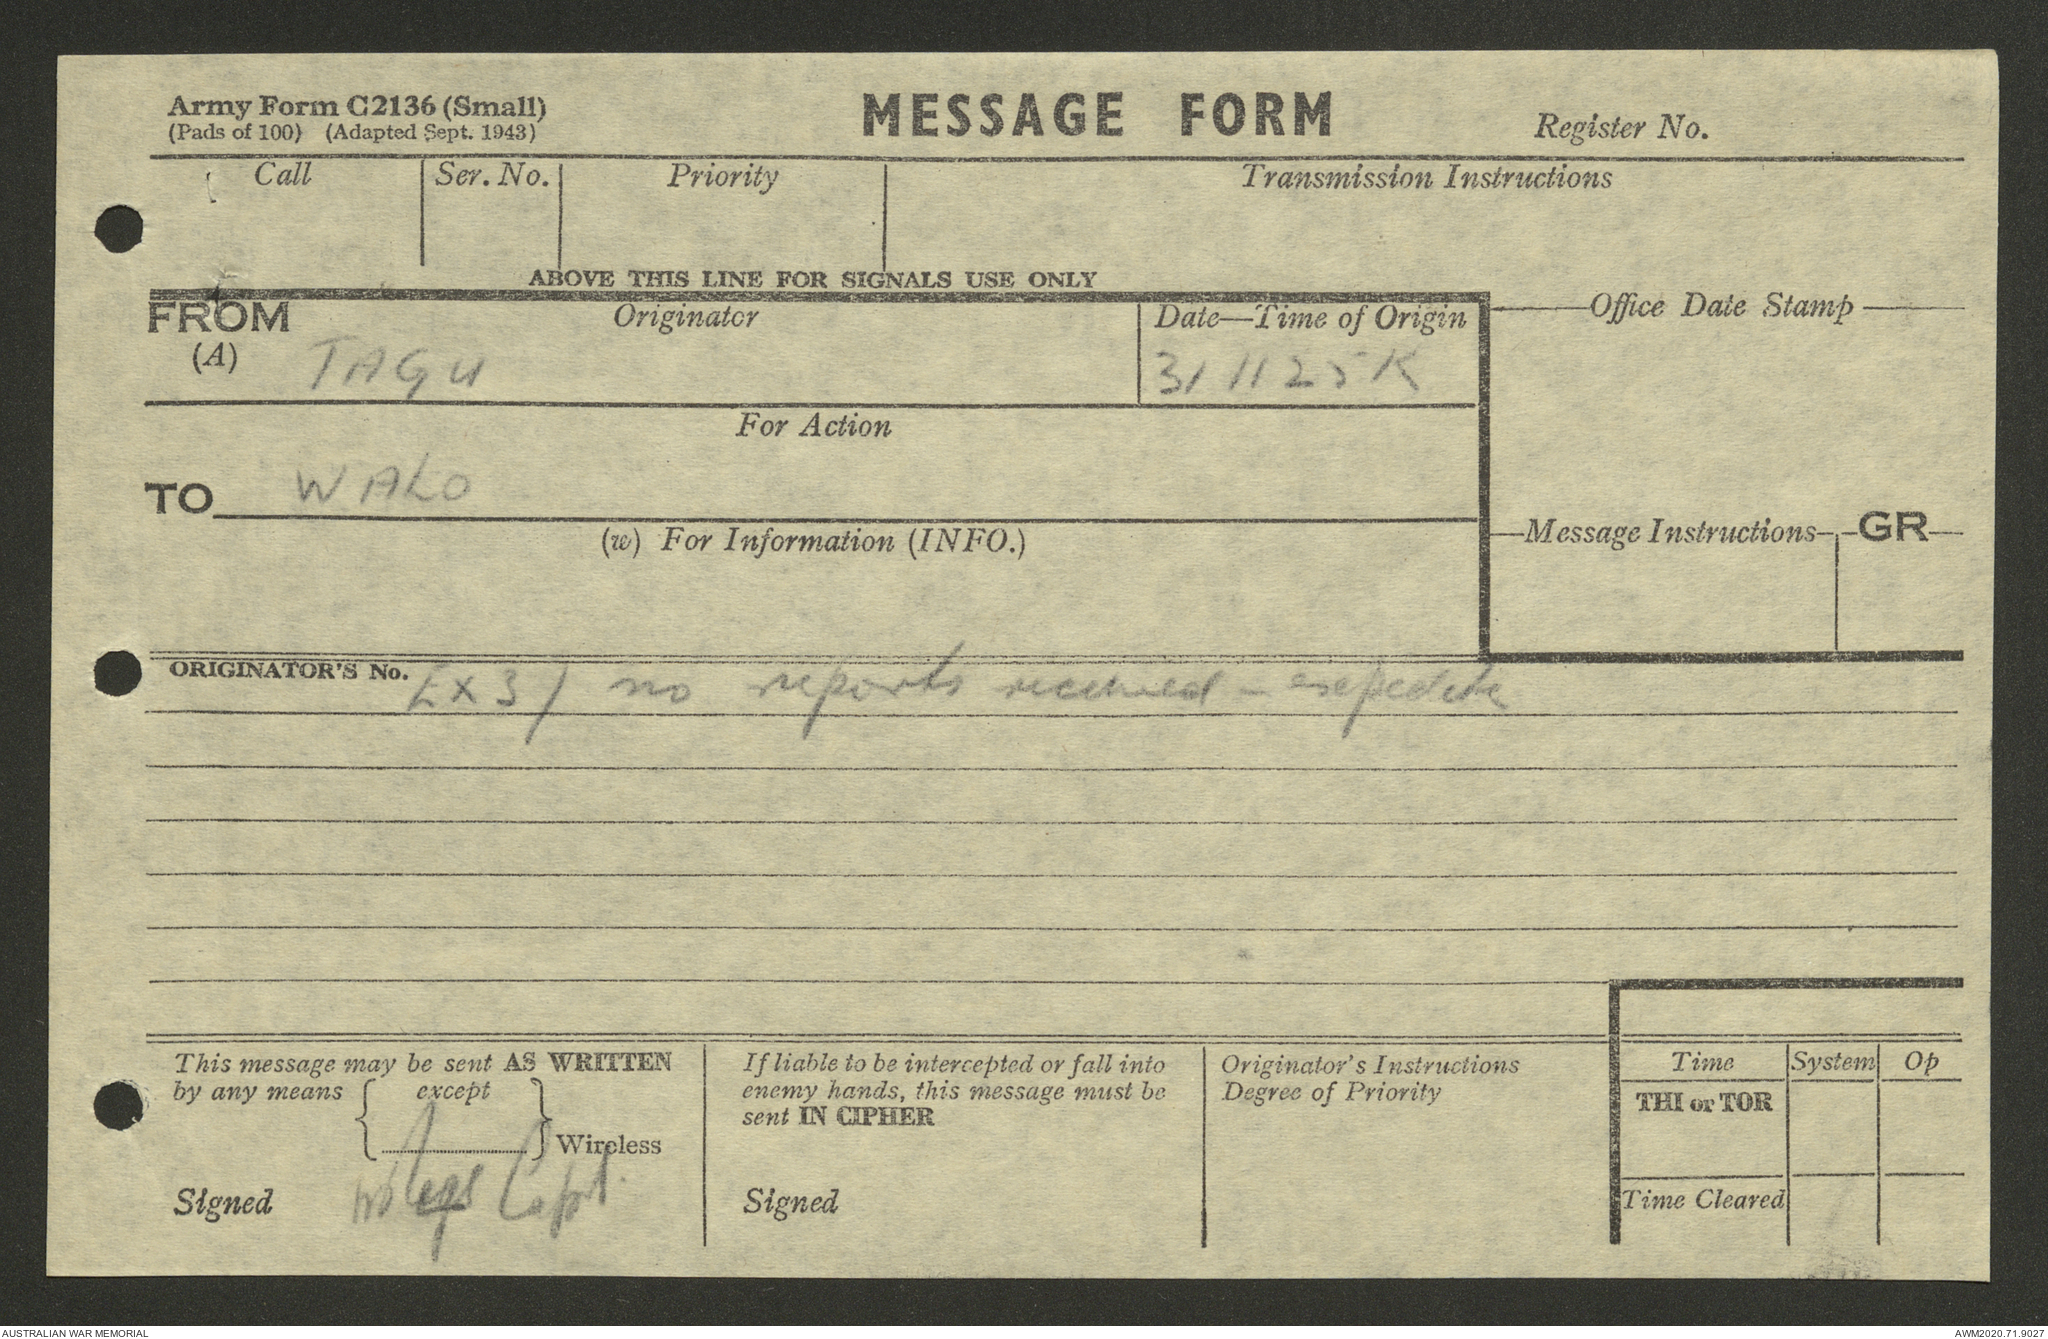 Army Form C2136 (Small)
(Pads of 100) (Adapted Sept. 1943)
MESSAGE FORM
Register No.
Call
Ser. No.
Priority
Transmission Instructions
ABOVE THIS LINE FOR SIGNALS USE ONLY
FROM
(A)
Originator
TAGU
Date—Time of Origin
311125K
Office Date Stamp
For Action
TO
WALO
(w) For Information (INFO.)
Message Instructions
GR
ORIGINATOR'S No.
EX3/ no reports received - expedite
This message may be sent AS WRITTEN
by any means except
Wireless
Signed
Capt.
If liable to be intercepted or fall into
enemy hands, this message must be
sent IN CIPHER
Signed
Originator's Instructions
Degree of Priority
Time
System
Op
THI or TOR
Time Cleared
AUSTRALIAN WAR MEMORIAL
AWM2020.71.9027